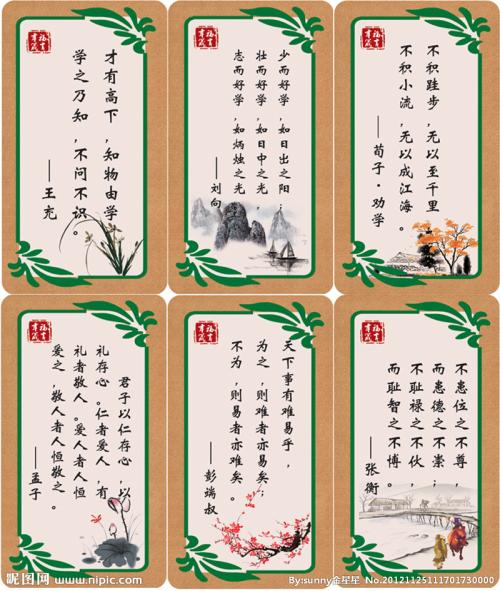 才有高下,知物由学
学之乃知,不问不识。
——王充
少而好学,如日出之阳;
壮而好学,如日中之光,
志而好学,如炳烛之光。
——刘向
不积跬步,无以至千里
不积小流,无以成江海。
——荀子·劝学
君子以仁存心,以
礼存心。仁者爱人,有
礼者敬人。爱人者人恒
爱之,敬人者人恒敬之。
——孟子
天下事有难易乎,
为之,则难者亦易矣;
不为,则易者亦难矣。
——彭端叔
不患位之不尊,
而患德之不崇;
不耻禄之不伙,
而耻智之不博。
——张衡
昵图网 www.nipic.com
By:sunny金星星 No.20121125111701730000